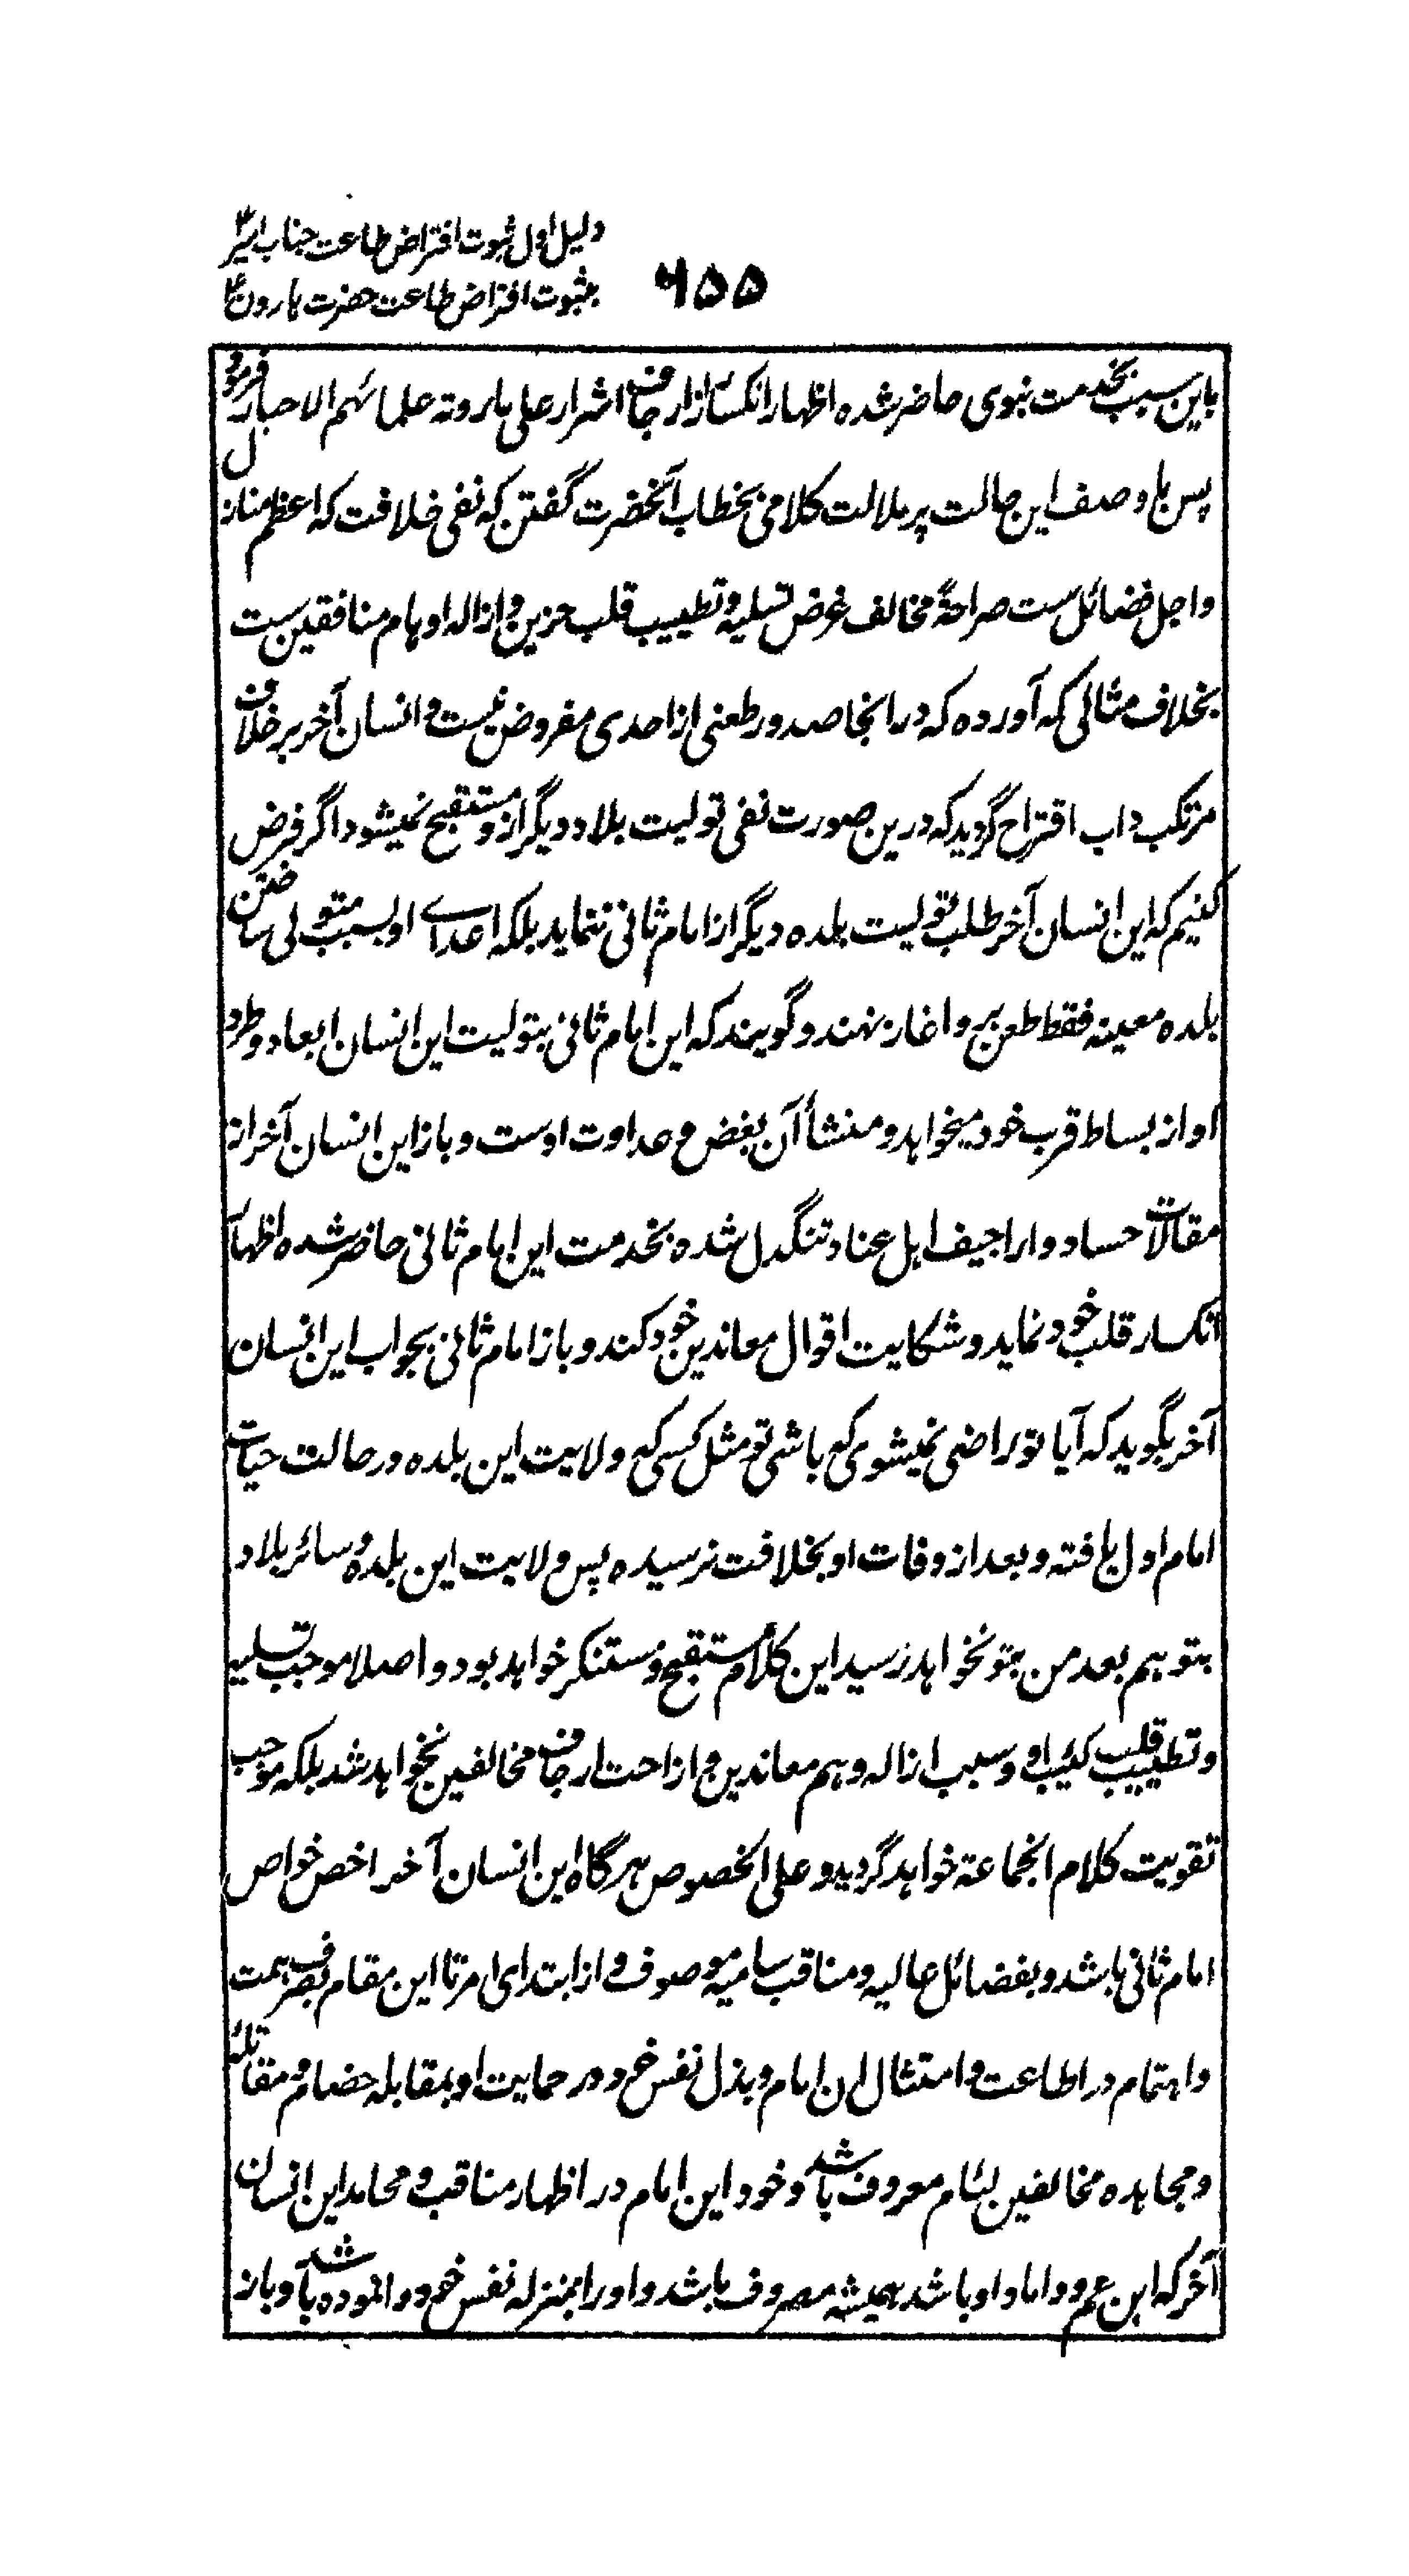 دلیل اول ثبوت افتراض طاعت جناب امیرؑ
بثبوت افتراض طاعت حضرت هارونؑ
۶۵۵
باین سبب بخدمت نبوی حاضر شده اظهار انکسار از ارجاف اشرار علی ما روته علمائهم الاحبار فرمود
پس با وصف این حالت پر ملالت کلامی بخطاب آنحضرت گفتن که نفی خلافت که اعظم منازل
و اجل فضائل ست صراحةً مخالف غرض تسلیه و تطییب قلب حزین و ازاله اوهام منافقین ست
بخلاف مثالی که آورده که در انجا صدور طعنی از احدی مفروض نیست و انسان آخر بر خلاف
مرتکب داب اقتراح گردید که درین صورت نفی تولیت بلاد دیگر ازو مستقبح نمیشود اگر فرض
کنیم که این انسان آخر طلب تولیت بلده دیگر از امام ثانی ننماید بلکه اعدای او بسبب متولی ساختن
بلده معینه فقط طعن برو اغاز نهند و گویند که این امام ثانی بتولیت این انسان ابعاد و طرد
او از بساط قرب خود میخواهد و منشأ آن بغض و عداوت اوست و باز این انسان آخر از
مقالات حساد و اراجیف اهل عناد تنگدل شده بخدمت این امام ثانی حاضر شده اظهار
انکسار قلب خود نماید و شکایت اقوال معاندین خود کند و باز امام ثانی بجواب این انسان
آخر بگوید که آیا تو راضی نمیشوی که باشی تو مثل کسی که ولایت این بلده در حالت حیات
امام اول یافته و بعد از وفات او بخلافت نرسیده پس ولایت این بلده و سائر بلاد
بتو هم بعد من بتو نخواهد رسید این کلام مستقبح و مستنکر خواهد بود و اصلا موجب تسلیه
و تطییب قلب کئیب او و سبب ازاله وهم معاندین و ازاحت ارجاف مخالفین نخواهد شد بلکه موجب
تقویت کلام انجماعة خواهد گردید و علی الخصوص هرگاه این انسان آخر اخص خواص
امام ثانی باشد و بفضائل عالیه و مناقب سامیه موصوف و از ابتدای امر تا این مقام بصرف همت
و اهتمام در اطاعت و امتثال این امام و بذل نفس خود در حمایت او بمقابله خصام و مقاتله
و مجاهده مخالفین لئام معروف باشد و خود این امام در اظهار مناقب و محامد این انسان
آخر که ابن عم و داماد او باشد همیشه مصروف باشد و او را بمنزله نفس خود وانموده باشد و باز